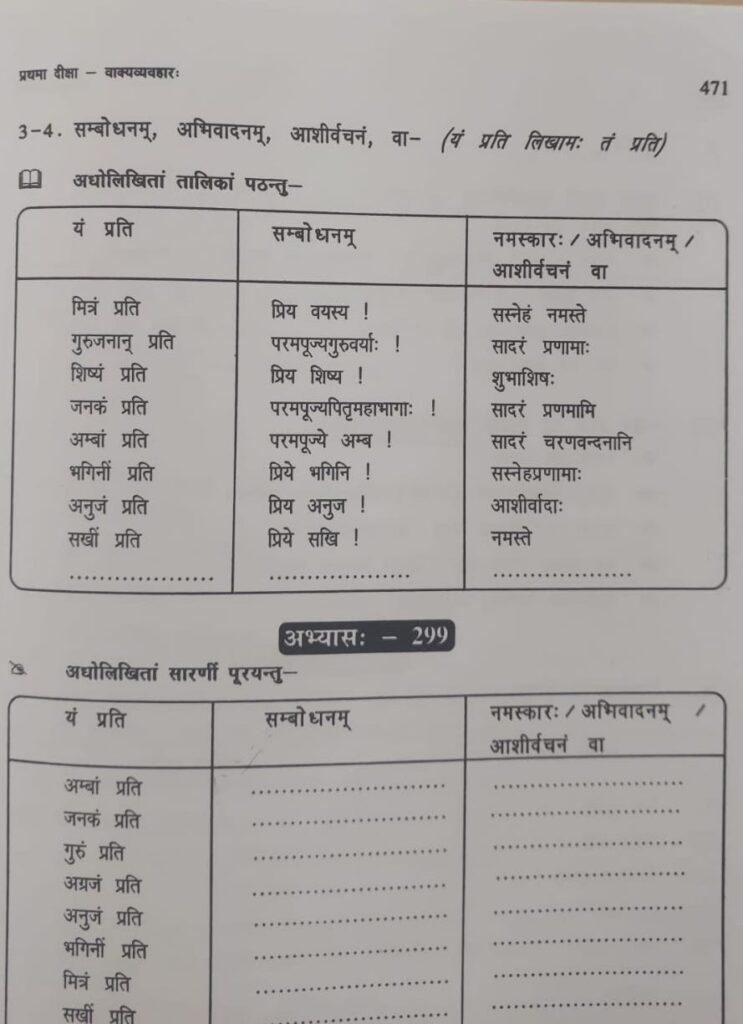 प्रथमा दीक्षा – वाक्यव्यवहारः
471
3-4. सम्बोधनम्, अभिवादनम्, आशीर्वचनं, वा– (यं प्रति लिखामः तं प्रति)
अधोलिखितां तालिकां पठन्तु–
यं प्रति सम्बोधनम् नमस्कारः / अभिवादनम् /
आशीर्वचनं वा
मित्रं प्रति प्रिय वयस्य ! सस्नेहं नमस्ते
गुरुजनान् प्रति परमपूज्यगुरुवर्याः ! सादरं प्रणामाः
शिष्यं प्रति प्रिय शिष्य ! शुभाशिषः
जनकं प्रति परमपूज्यपितृमहाभागाः ! सादरं प्रणमामि
अम्बां प्रति परमपूज्ये अम्ब ! सादरं चरणवन्दनानि
भगिनीं प्रति प्रिये भगिनि ! सस्नेहप्रणामाः
अनुजं प्रति प्रिय अनुज ! आशीर्वादाः
सखीं प्रति प्रिये सखि ! नमस्ते
................... .................... ...................
अभ्यासः – 299
अधोलिखितां सारणीं पूरयन्तु–
यं प्रति सम्बोधनम् नमस्कारः / अभिवादनम् /
आशीर्वचनं वा
अम्बां प्रति ........................... ...........................
जनकं प्रति ........................... ...........................
गुरुं प्रति ........................... ...........................
अग्रजं प्रति ........................... ...........................
अनुजं प्रति ........................... ...........................
भगिनीं प्रति ........................... ...........................
मित्रं प्रति ........................... ...........................
सखीं प्रति ........................... ...........................